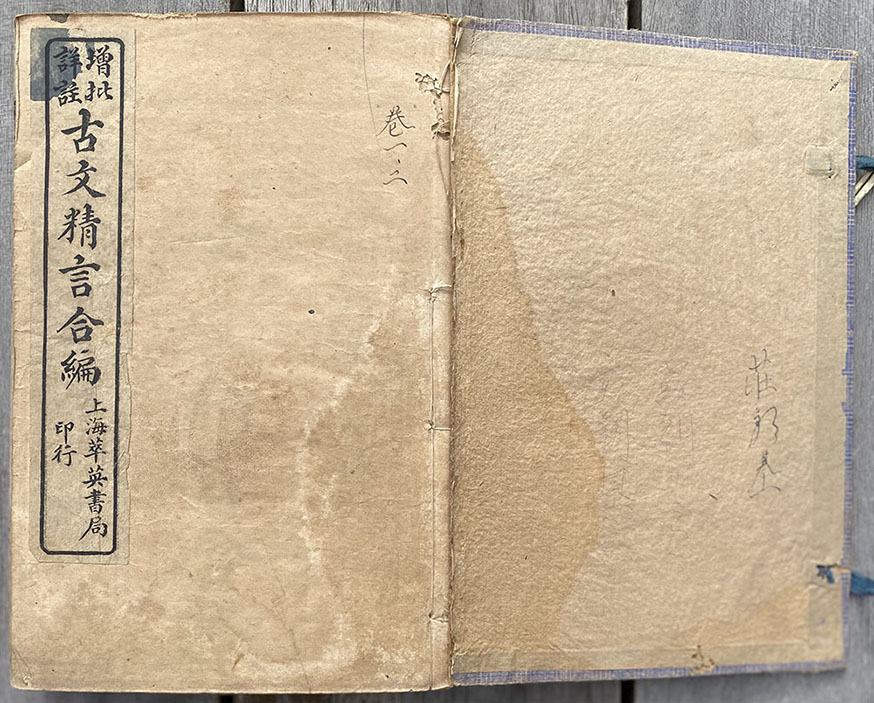 增批
詳註
古文精言合編
上海萃英書局
印行
卷一、二